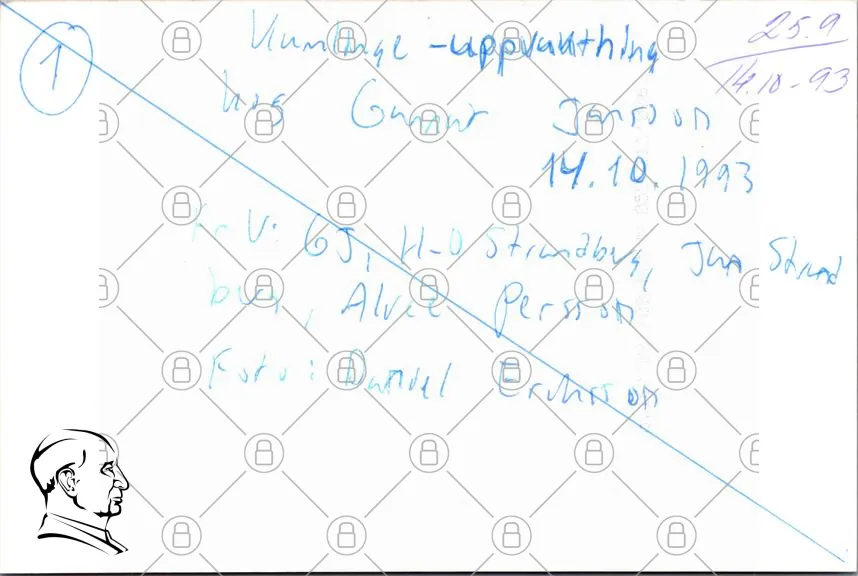 1
25.9
14.10-93
Kumlinge-uppvakthing
hos Gunnar Jansson
14.10.1993
Fr V: GJ, H-O Strandberg, Jan Strand
berg, Alvee Persson
Foto: Daniel Eriksson